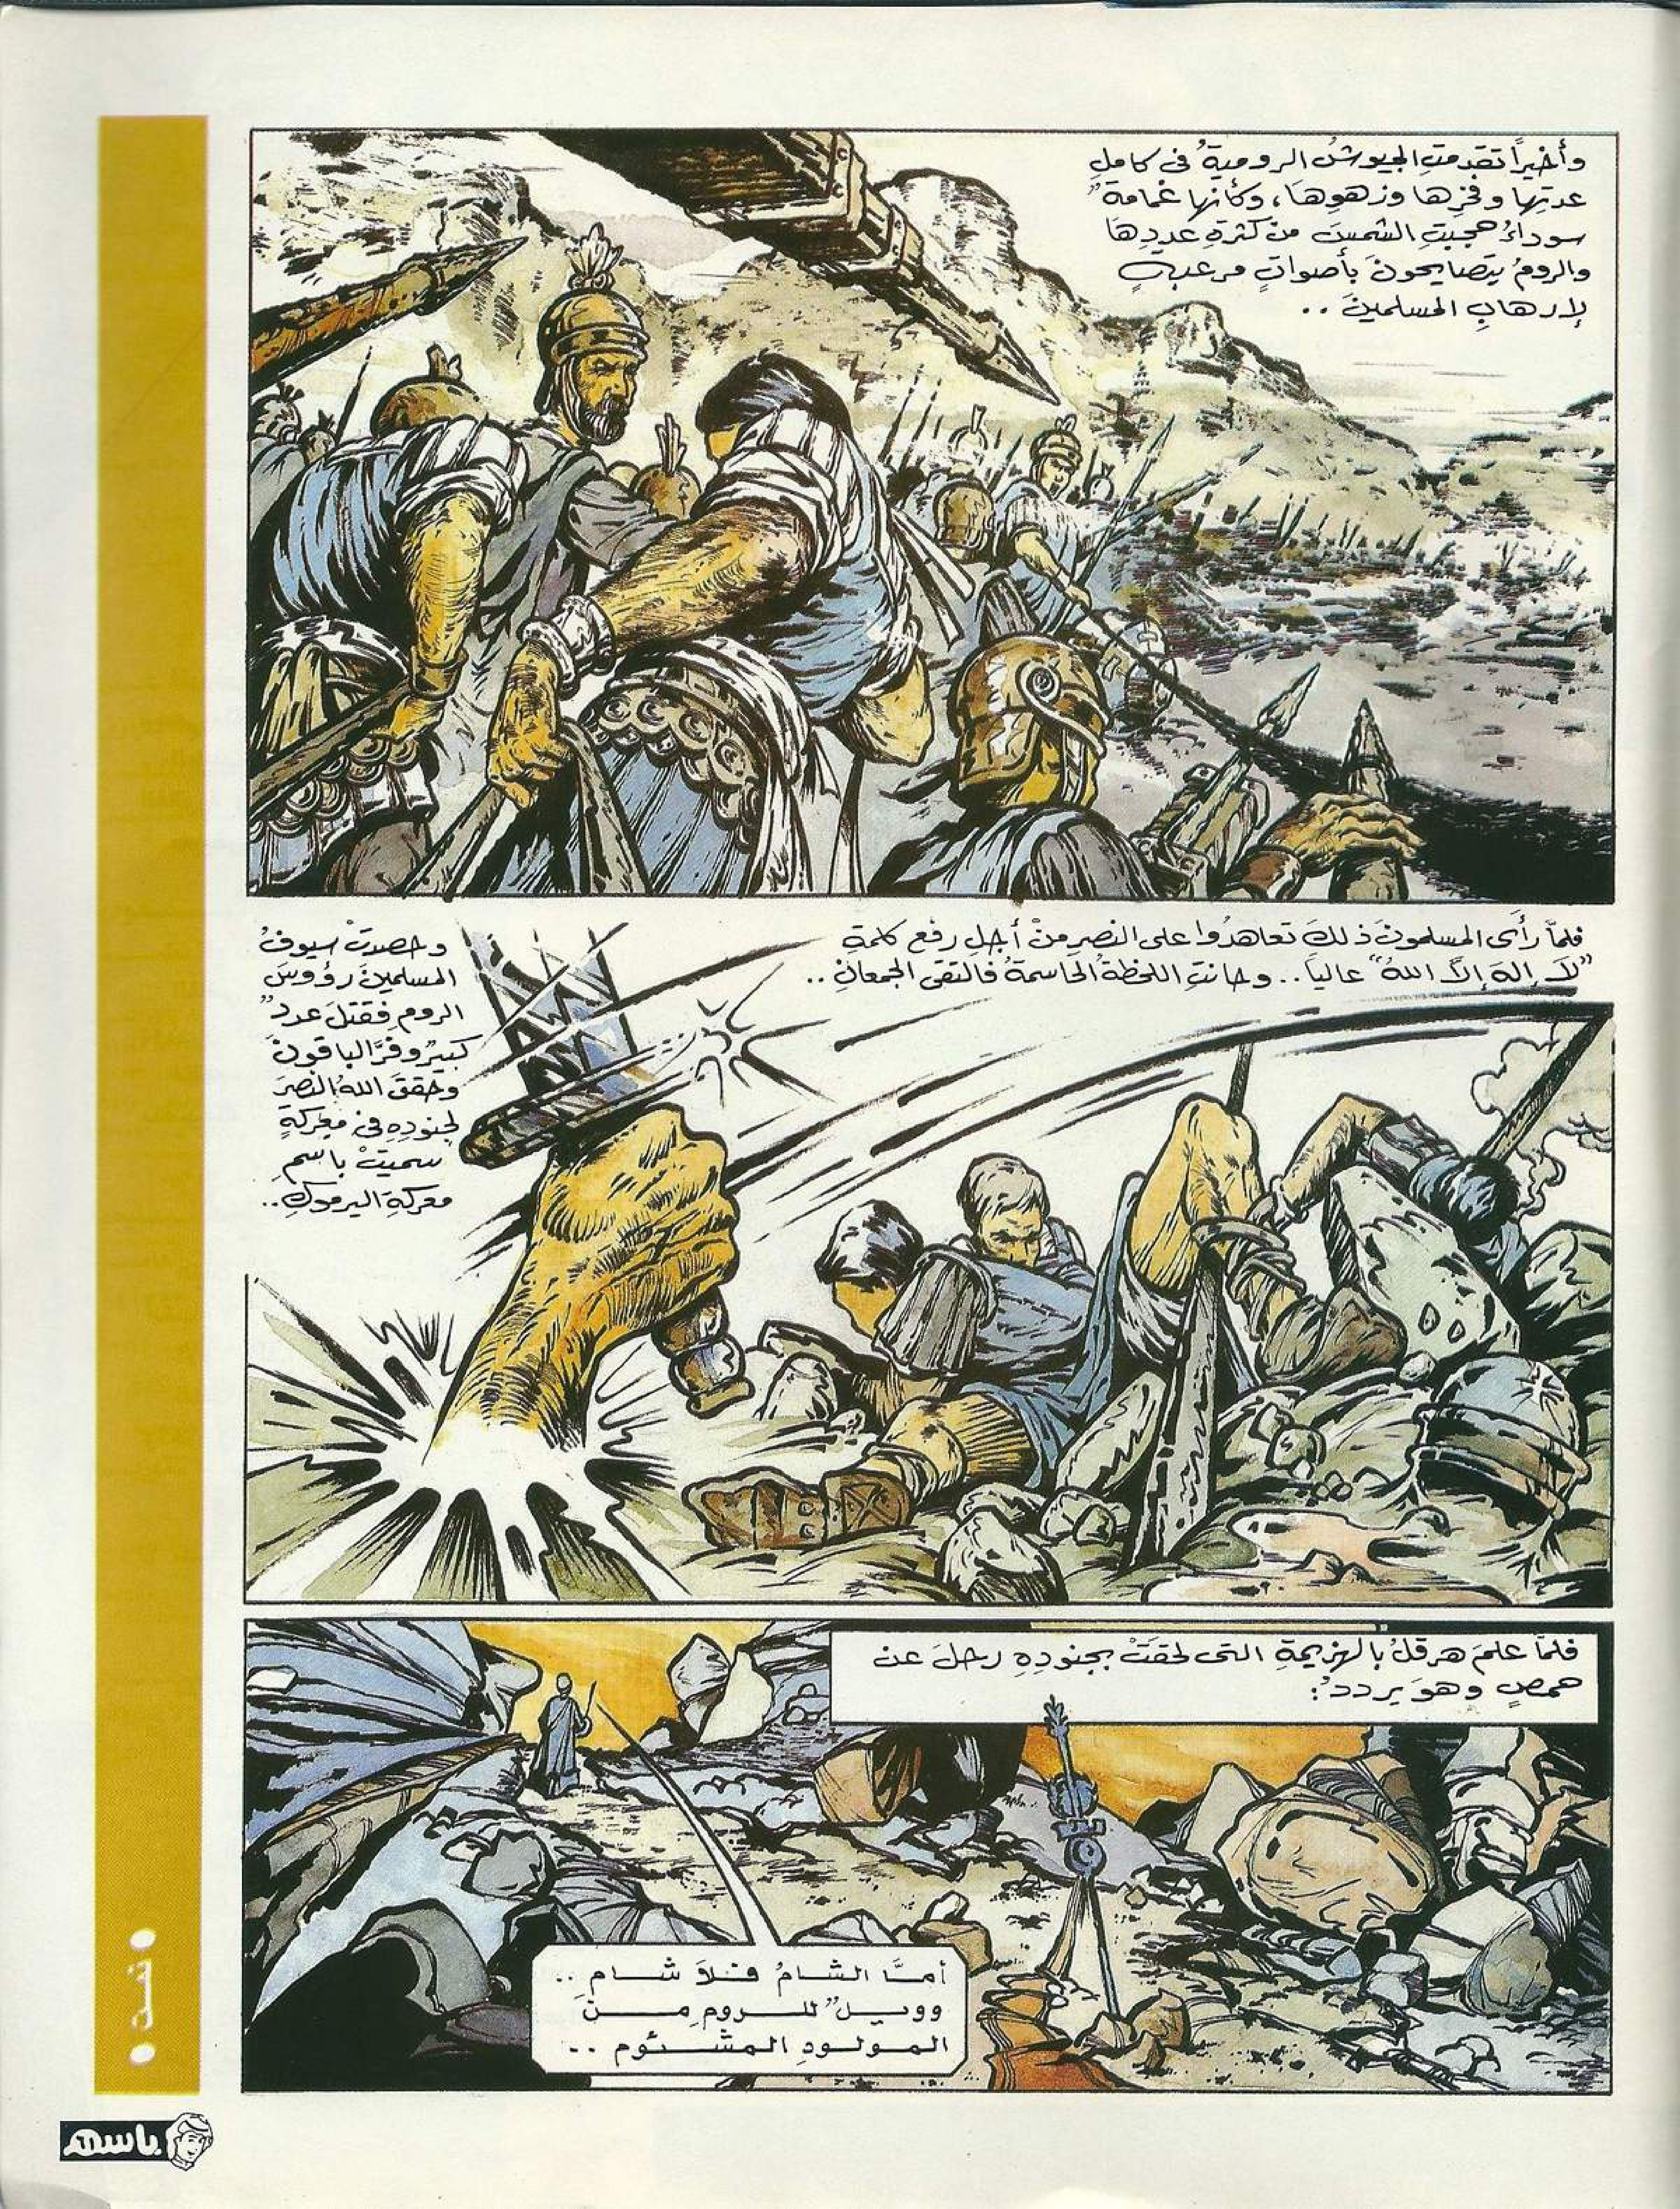 وأخيراً تقدمتِ الجيوشُ الروميةُ فى كاملِ
عدتِها وفخرِها وزهوِها، وكأنها غمامةٌ
سوداءُ حجبتِ الشمسَ من كثرةِ عددِها
والرومُ يتصايحونَ بأصواتٍ مرعبةٍ
لإرهابِ المسلمينَ ..
فلمَّا رأى المسلمونَ ذلكَ تعاهدُوا على النصرِ منْ أجلِ رفعِ كلمةِ
"لاَ إلهَ إلاَّ اللهُ" عالياً .. وحانتِ اللحظةُ الحاسمةُ فالتقى الجمعانِ ..
وحصدتْ سيوفُ
المسلمينَ رؤوسَ
الرومِ فقتلَ عددٌ
كبيرٌ وفرَّ الباقونَ
وحققَ اللهُ النصرَ
لجنودِهِ فى معركةٍ
سميتْ باسمِ
معركةِ اليرموكِ ..
فلمَّا علمَ هرقلُ بالهزيمةِ التى لحقتْ بجنودِهِ رحلَ عن
حمصٍ وهوَ يرددُ:
أمـَّا الشـامُ فـلاَ شـام ..
وويـلٌ للـرومِ مـنَ
المـولـودِ المشـئوم ..
باسم